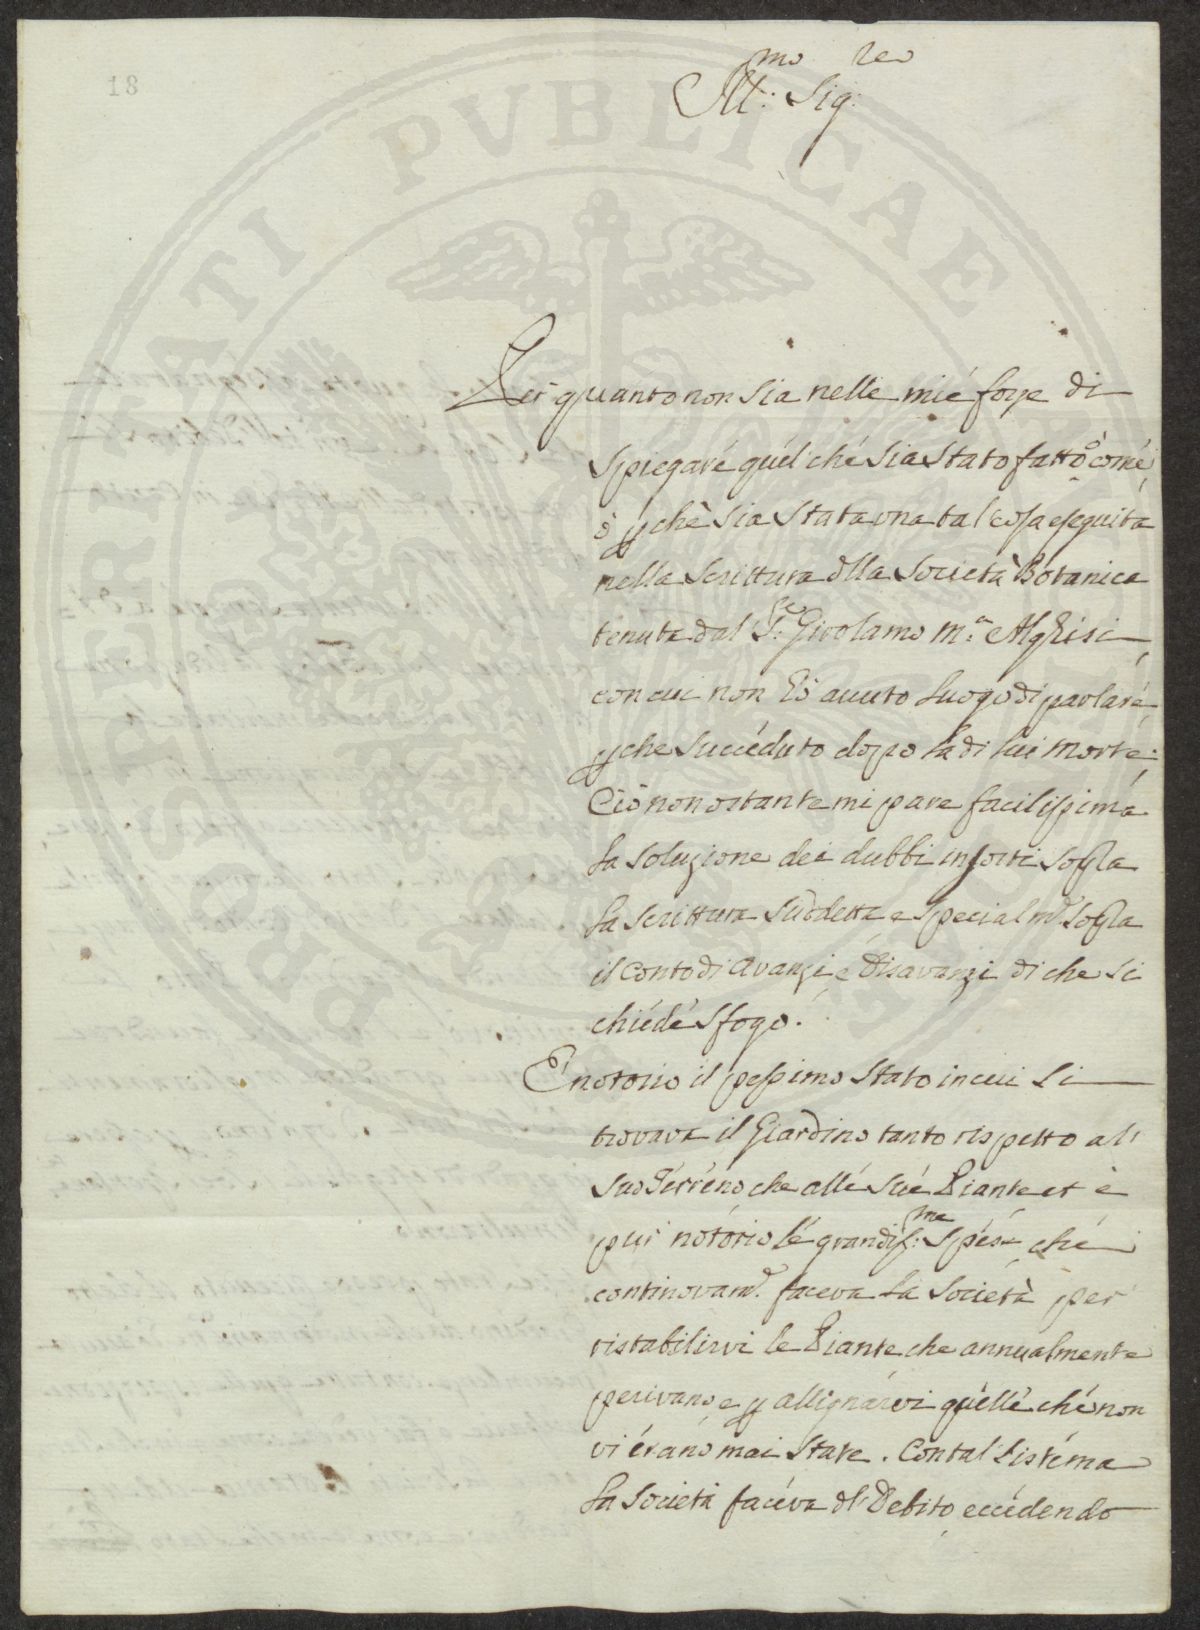 18
Ill:mo Sig:re
Per quanto non sia nelle mie forze di
spiegare quel che sia stato fatto, o come,
o p che sia stata una tal cosa eseguita
nella Scrittura dlla Società Botanica
tenuta dal Sr. Girolamo M.a Alghisi
con cui non hò avuto luogo di parlare,
p che succeduto dopo la di lui morte;
Ciò non ostante mi pare facilissima
la soluzione dei dubbi insorti sopra
la Scrittura suddetta, e specialm.e sopra
il Conto di Avanzi, e Disavanzi di che si
chiede sfogo.
È notorio il pessimo stato in cui si
trovava il Giardino tanto rispetto al
suo Terreno che alle sue Piante et è
pur notorio le grandiss:me spese che
continovam.e faceva la Società per
ristabilirvi le Piante che annualmente
perivano, e p allignarvi quelle che non
vi erano mai state. Con tal sistema
la Società faceva dl Debito eccedendo
PROSPERITATI PVBLICAE